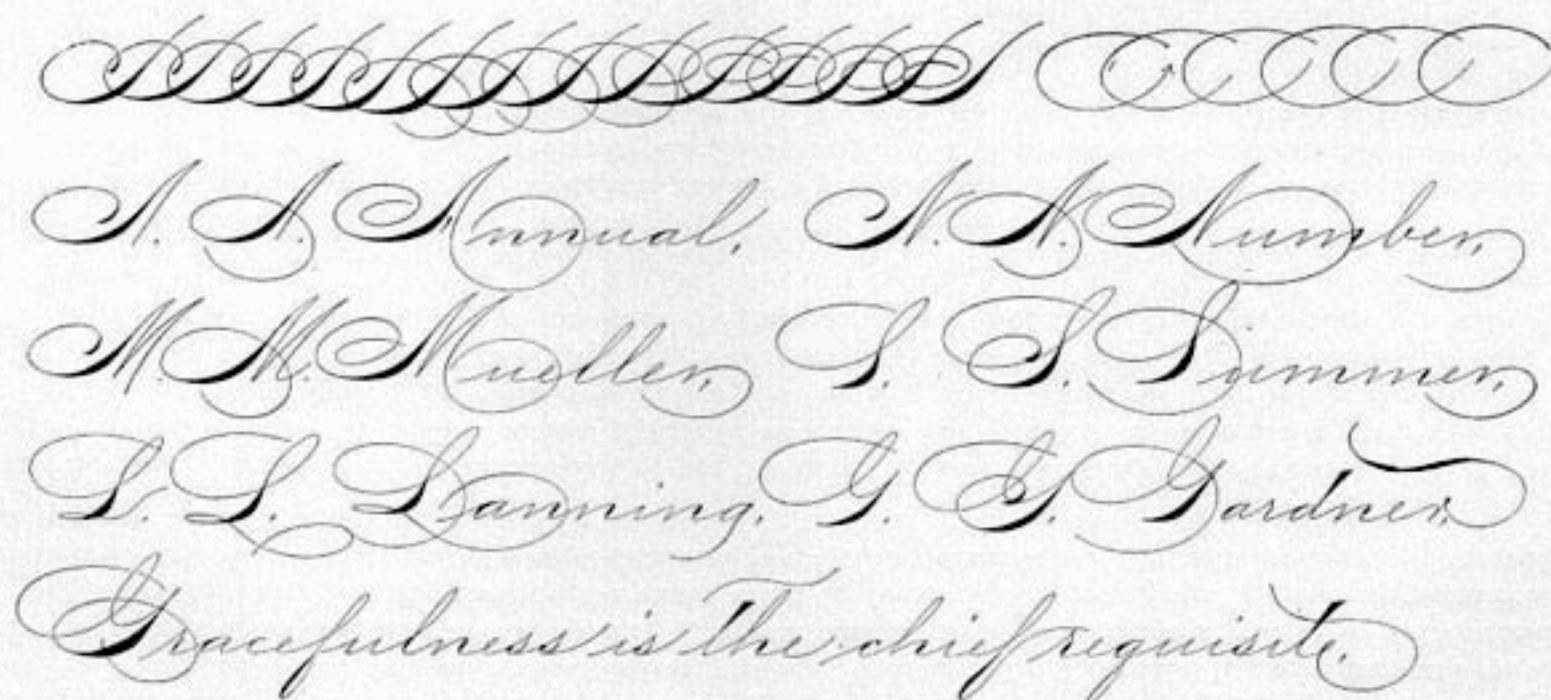 A. A. Annual, N. N. Number,
M. M. Mueller, S. S. Summer,
L. L. Lanning. G. G. Gardner.
Gracefulness is the chief requisite.